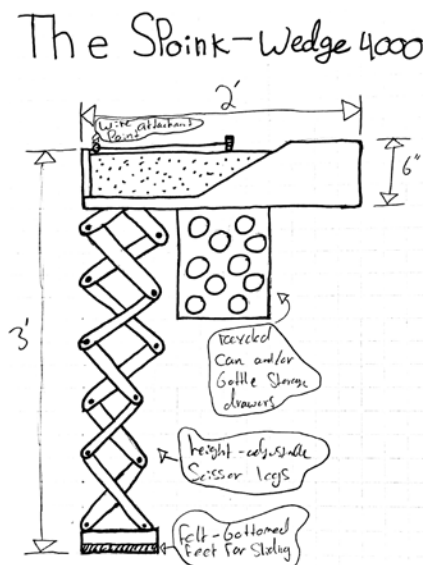 The SPoink-Wedge 4000
2'
Wire attachment
Point
6"
3'
recycled
Can and/or
bottle Storage
drawers
height-adjustable
Scissor legs
felt-bottomed
feet for Sliding